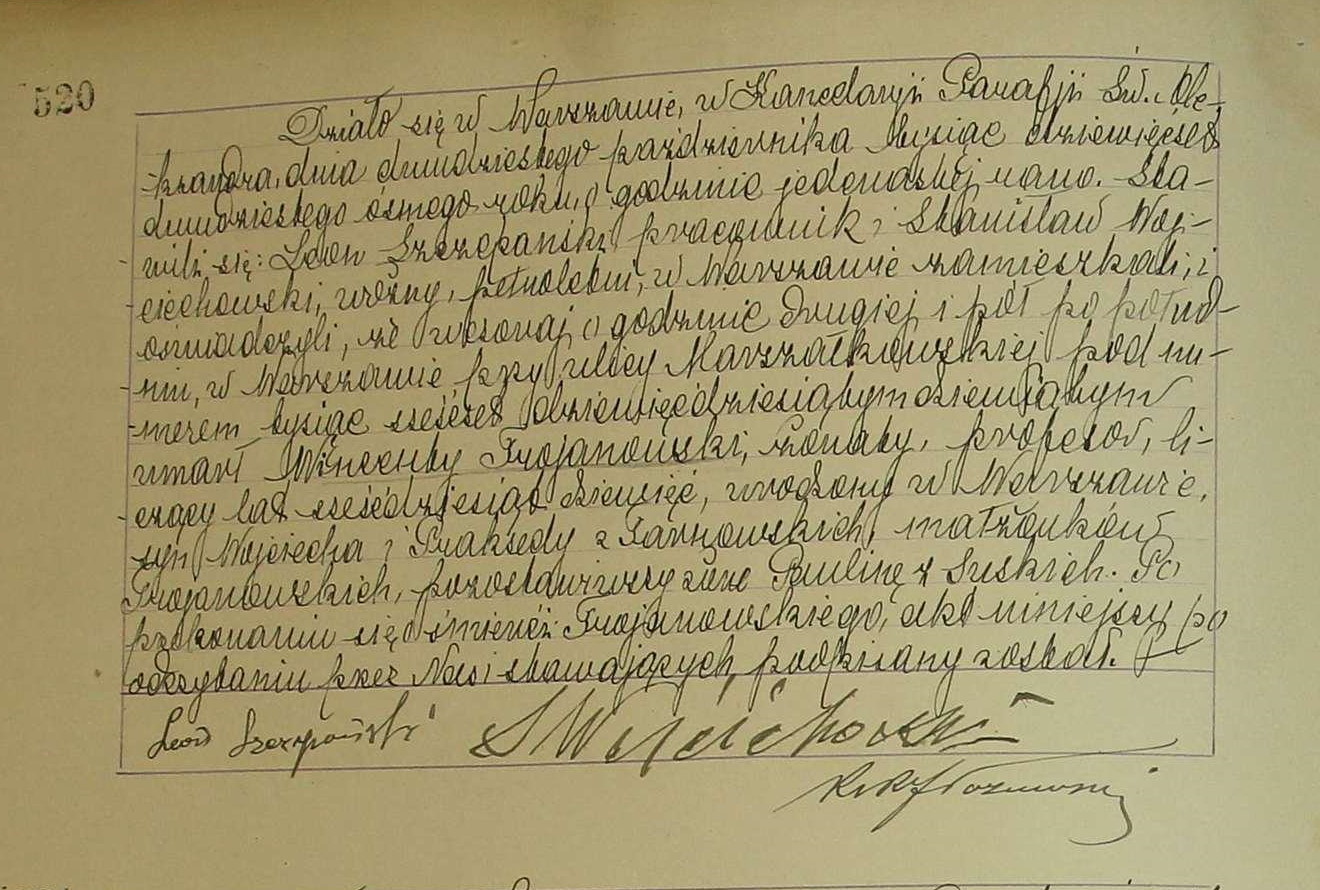 520
Działo się w Warszawie, w Kancelaryi Parafji Św. Ale-
ksandra, dnia dwudziestego października tysiąc dziewięćset
dwudziestego ósmego roku, o godzinie jedenastej rano. Sta-
wili się: Leon Szczepański, pracownik i Stanisław Woj-
ciechowski, woźny, pełnoletni, w Warszawie zamieszkali, i
oświadczyli, że wczoraj o godzinie drugiej i pół po połud-
niu, w Warszawie przy ulicy Marszałkowskiej pod nu-
merem tysiąc sześćset dziewięćdziesiątym dziewiątym
umarł Wincenty Trojanowski, żonaty, profesor, li-
czący lat sześćdziesiąt dziewięć, urodzony w Warszawie,
syn Wojciecha i Praksedy z Tarnowskich, małżonków
Trojanowskich, pozostawiwszy żonę Paulinę z Suskich. Po
przekonaniu się o śmierci Trojanowskiego, akt niniejszy po
odczytaniu przez Nas i stawających podpisany został.
Leon Szczepański S Wojciechowski